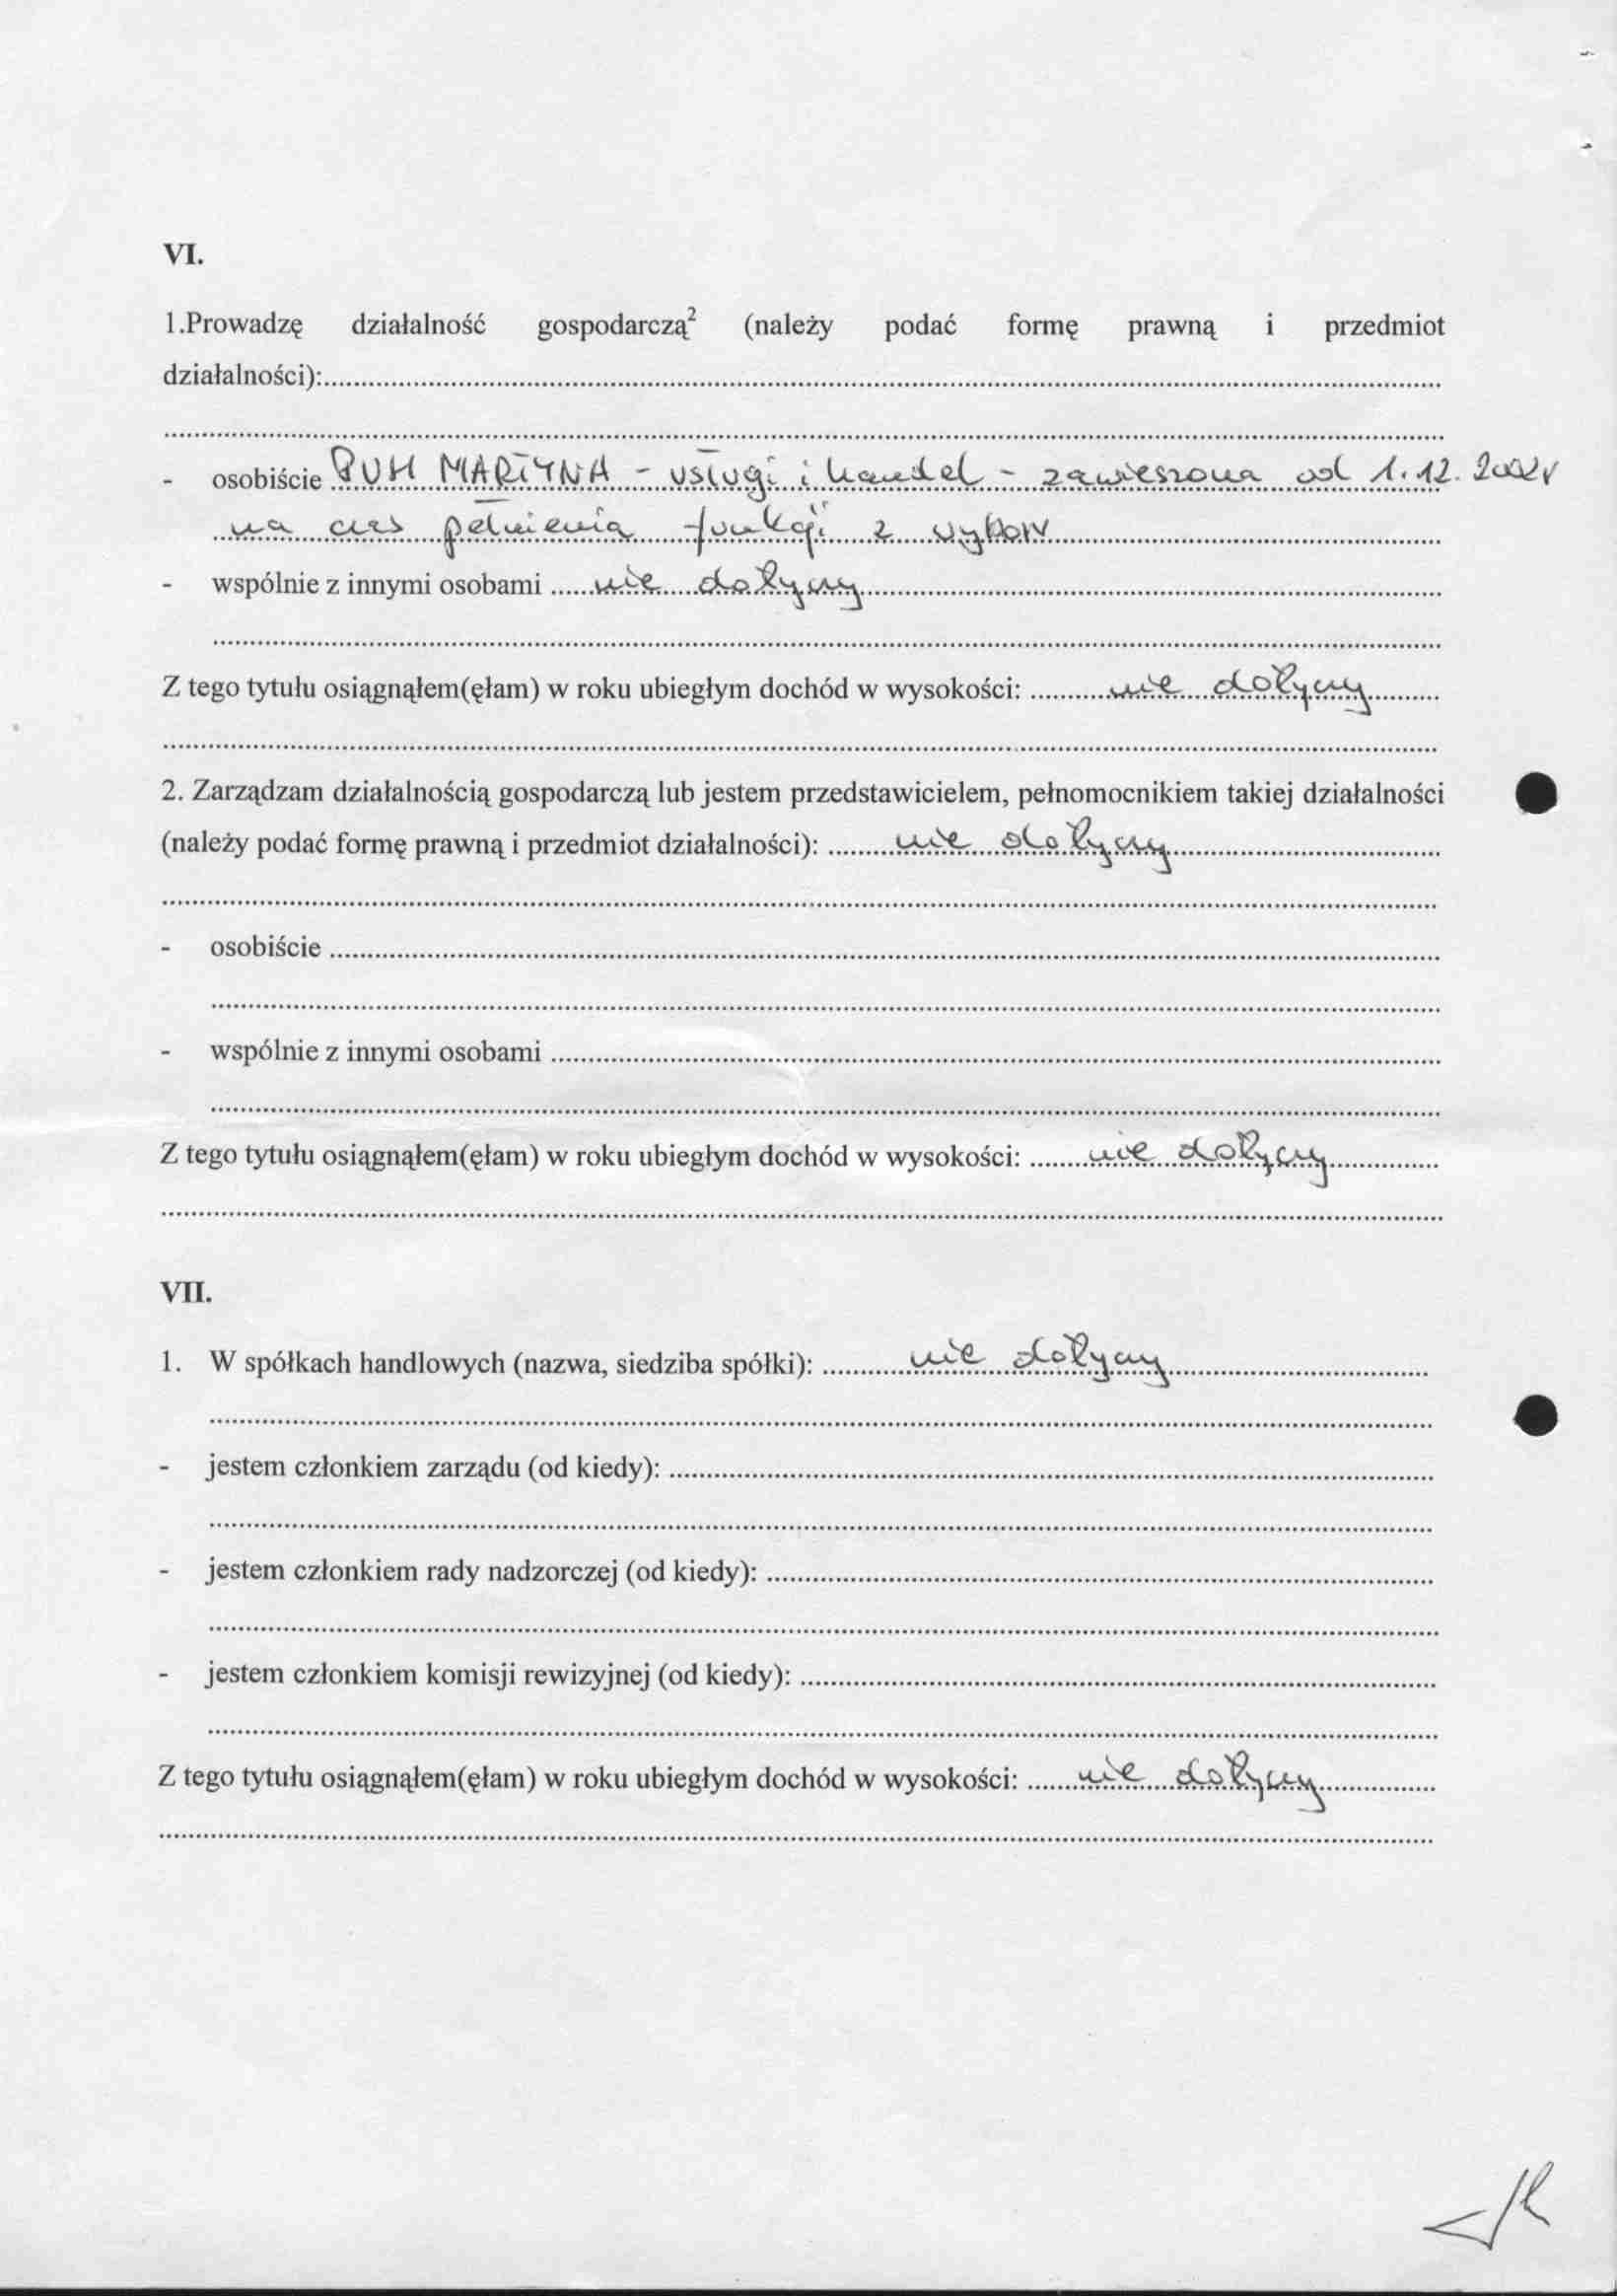 VI.
1.Prowadzę działalność gospodarczą² (należy podać formę prawną i przedmiot
działalności):
- osobiście PUH MARTYNA - usługi i handel - zawieszona od 1.12.2002r
na czas pełnienia funkcji z wyboru
- wspólnie z innymi osobami nie dotyczy
Z tego tytułu osiągnąłem(ęłam) w roku ubiegłym dochód w wysokości: nie dotyczy
2. Zarządzam działalnością gospodarczą lub jestem przedstawicielem, pełnomocnikiem takiej działalności
(należy podać formę prawną i przedmiot działalności): nie dotyczy
- osobiście
- wspólnie z innymi osobami
Z tego tytułu osiągnąłem(ęłam) w roku ubiegłym dochód w wysokości: nie dotyczy
VII.
1. W spółkach handlowych (nazwa, siedziba spółki): nie dotyczy
- jestem członkiem zarządu (od kiedy):
- jestem członkiem rady nadzorczej (od kiedy):
- jestem członkiem komisji rewizyjnej (od kiedy):
Z tego tytułu osiągnąłem(ęłam) w roku ubiegłym dochód w wysokości: nie dotyczy